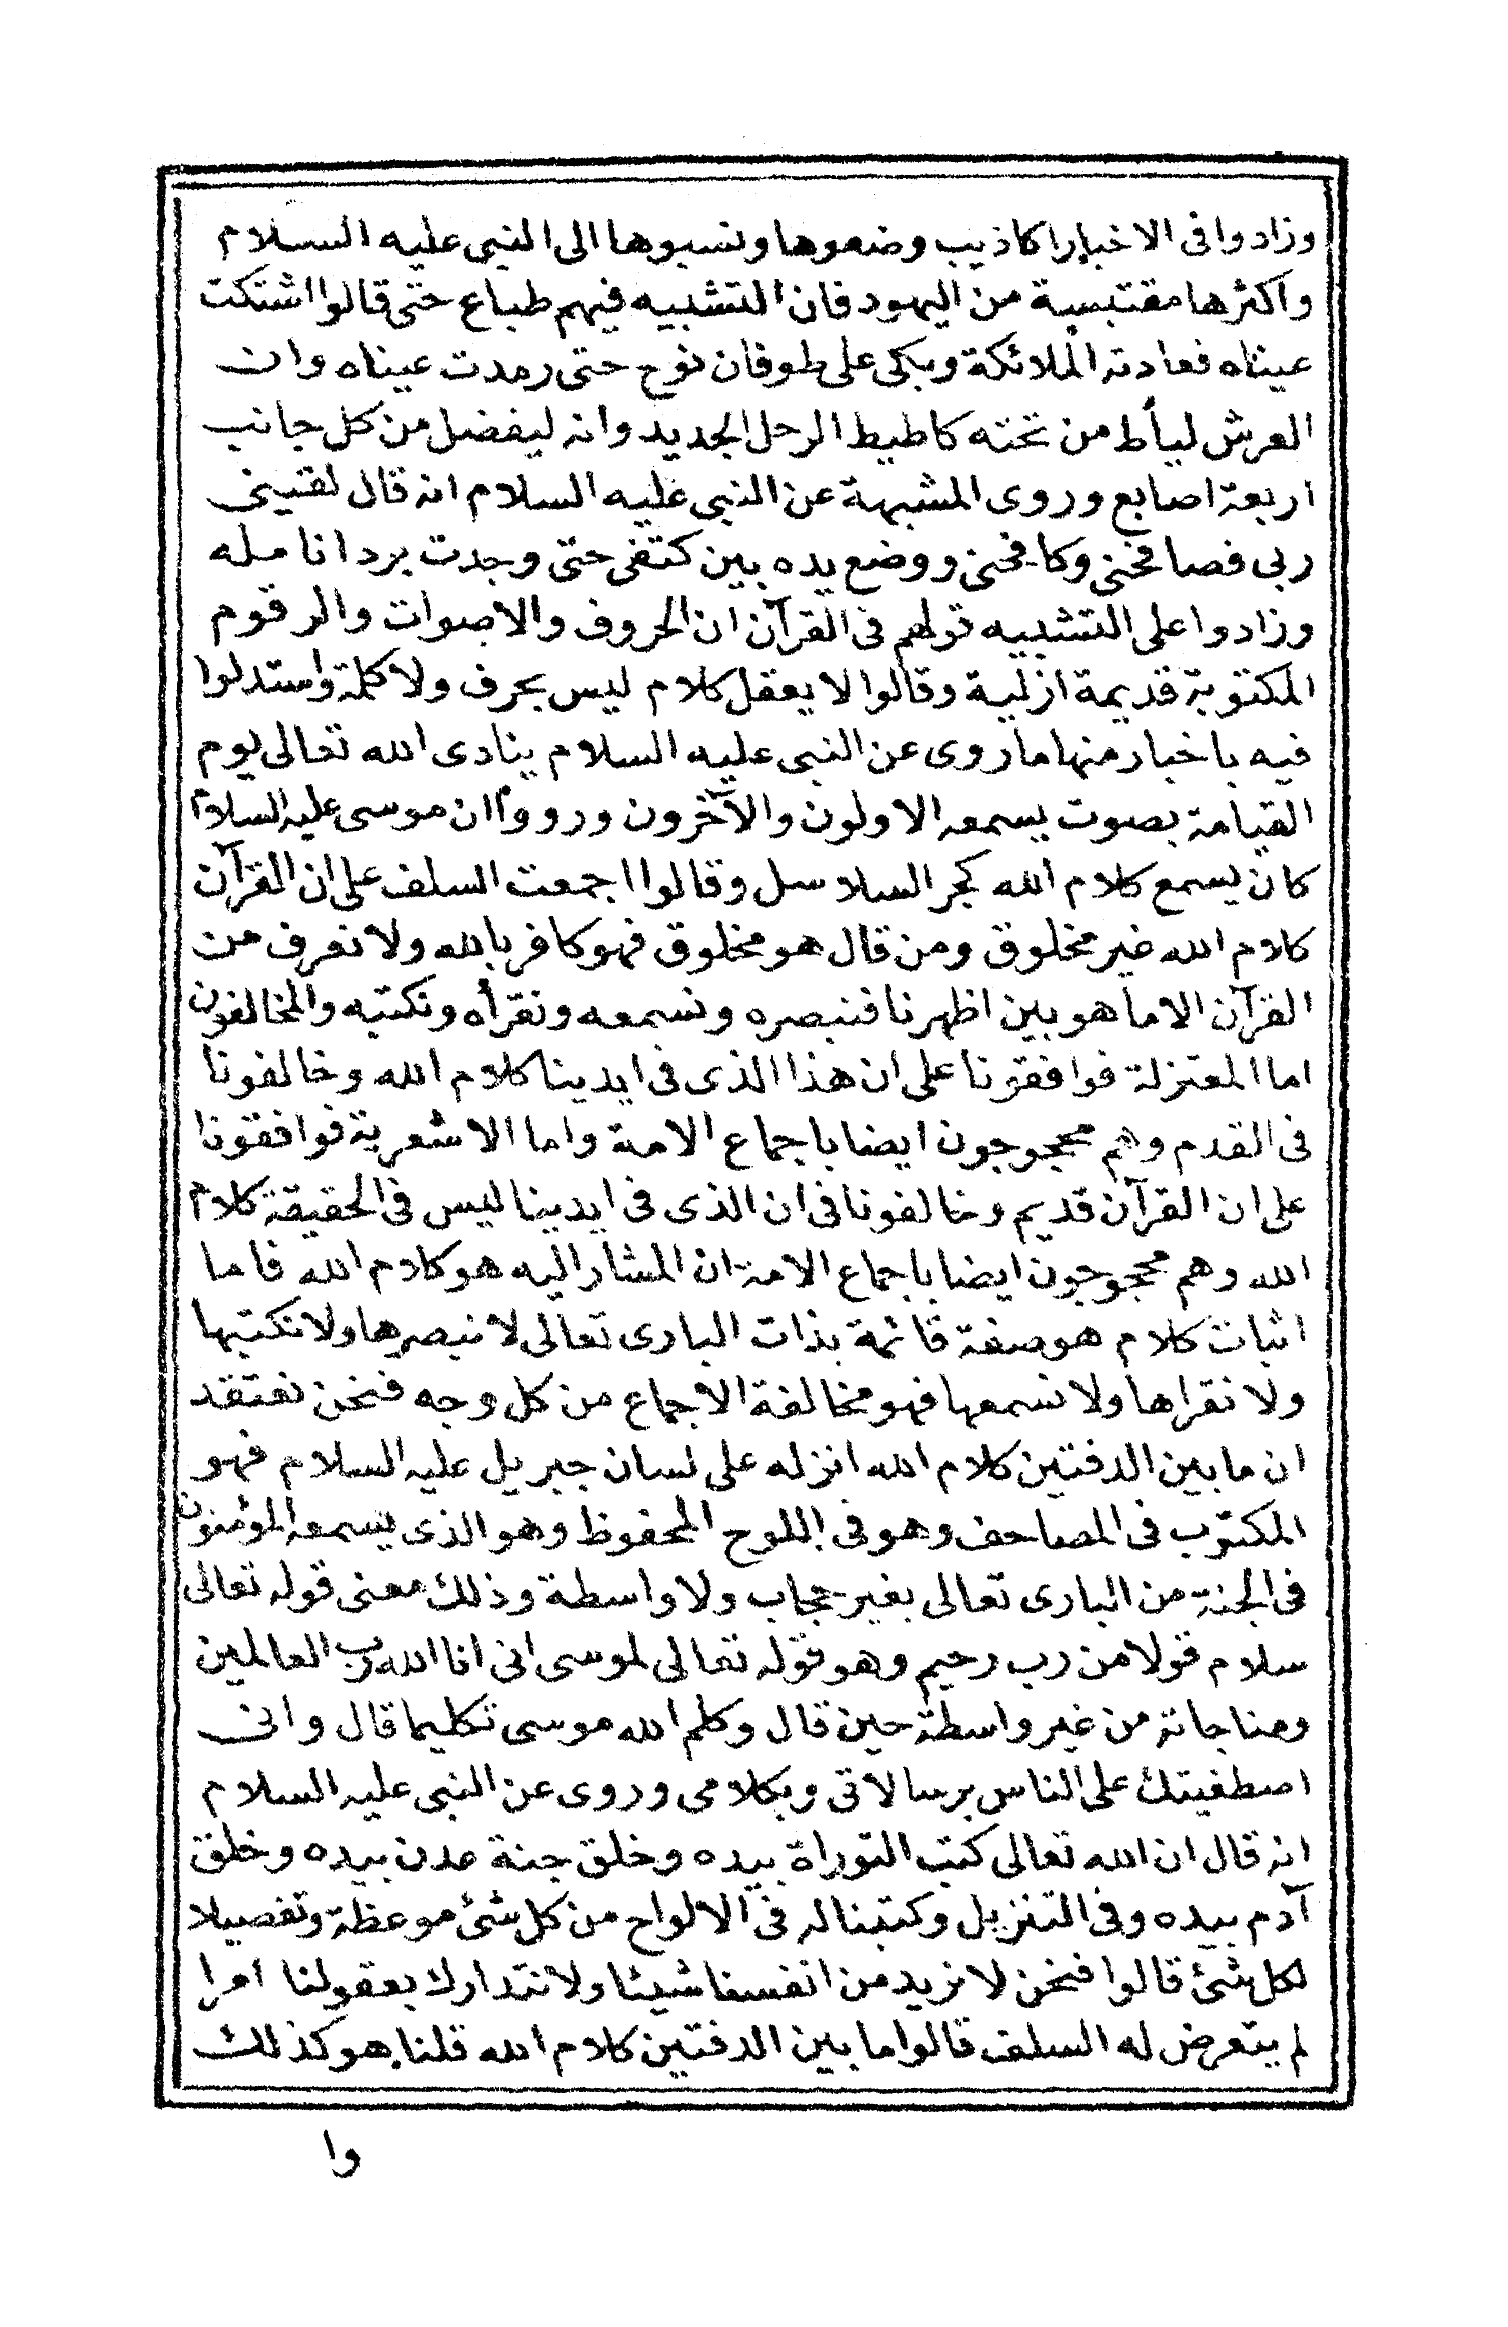 وزادوا فى الاخبار اكاذيب وضعوها ونسبوها الى النبى عليه السلام
واكثرها مقتبسة من اليهود فان التشبيه فيهم طباع حتى قالوا اشتكت
عيناه فعادته الملائكة وبكى على طوفان نوح حتى رمدت عيناه وان
العرش ليأط من تحته كاطيط الرحل الجديد وانه ليفضل من كل جانب
اربعة اصابع وروى المشبهة عن النبى عليه السلام انه قال لقينى
ربى فصافحنى وكافحنى ووضع يده بين كتفى حتى وجدت برد انامله
وزادوا على التشبيه قولهم فى القرآن ان الحروف والاصوات والرقوم
المكتوبة قديمة ازلية وقالوا لا يعقل كلام ليس بحرف ولا كلمة واستدلوا
فيه باخبار منها ما روى عن النبى عليه السلام ينادى الله تعالى يوم
القيامة بصوت يسمعه الاولون والآخرون ورووا ان موسى عليه السلام
كان يسمع كلام الله كجر السلاسل وقالوا اجمعت السلف على ان القرآن
كلام الله غير مخلوق ومن قال هو مخلوق فهو كافر بالله ولا نعرف من
القرآن الا ما هو بين اظهرنا فنبصره ونسمعه ونقرأه ونكتبه والمخالفون
اما المعتزلة فوافقونا على ان هذا الذى فى ايدينا كلام الله وخالفونا
فى القدم وهم محجوجون ايضا باجماع الامة واما الاشعرية فوافقونا
على ان القرآن قديم وخالفونا فى ان الذى فى ايدينا ليس فى الحقيقة كلام
الله وهم محجوجون ايضا باجماع الامة ان المشار اليه هو كلام الله فاما
اثبات كلام هو صفة قائمة بذات البارى تعالى لا نبصرها ولا نكتبها
ولا نقراها ولا نسمعها فهو مخالفة الاجماع من كل وجه فنحن نعتقد
ان ما بين الدفتين كلام الله انزله على لسان جبريل عليه السلام فهو
المكتوب فى المصاحف وهو فى اللوح المحفوظ وهو الذى يسمعه المؤمنون
فى الجنة من البارى تعالى بغير حجاب ولا واسطة وذلك معنى قوله تعالى
سلام قولا من رب رحيم وهو قوله تعالى لموسى انى انا الله رب العالمين
ومناجاته من غير واسطة حين قال وكلم الله موسى تكليما قال وانى
اصطفيتك على الناس برسالاتى وبكلامى وروى عن النبى عليه السلام
انه قال ان الله تعالى كتب التوراة بيده وخلق جنة عدن بيده وخلق
آدم بيده وفى التنزيل وكتبنا له فى الالواح من كل شئ موعظة وتفصيلا
لكل شئ قالوا فنحن لا نزيد من انفسنا شيئا ولا نتدارك بعقولنا امرا
لم يتعرض له السلف قالوا ما بين الدفتين كلام الله قلنا هو كذلك
وا